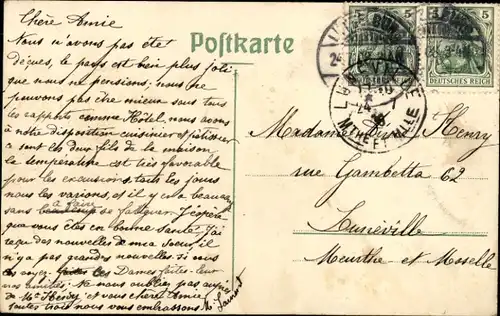 Chère Amie
Nous n'avons pas été
déçues, le pays est bien plus joli
que nous ne pensions; nous ne
pouvons pas être mieux sous tous
les rapports comme Hôtel, nous avons
à notre disposition cuisinier et pâtissier
a sont les deux fils de la maison
la température est très favorable
pour les excursions, tous les jours
nous les varions, et il y en a beaucoup
à faire
sans beaucoup se fatiguer. J'espère
que vous êtes en bonne santé. J'ai
reçu des nouvelles de ma soeur, il
n'y a pas grandes nouvelles si vous
Dames faites-leur
nos amitiés. Ne nous oubliez pas auprès
de Mr Henry; et vous chère Amie
toutes trois nous vous embrassons.
Postkarte
5
5
DEUTSCHES REICH
MTHE ET MLLE
Madame Henry
rue Gambetta 62
Lunéville
Meurthe et Moselle